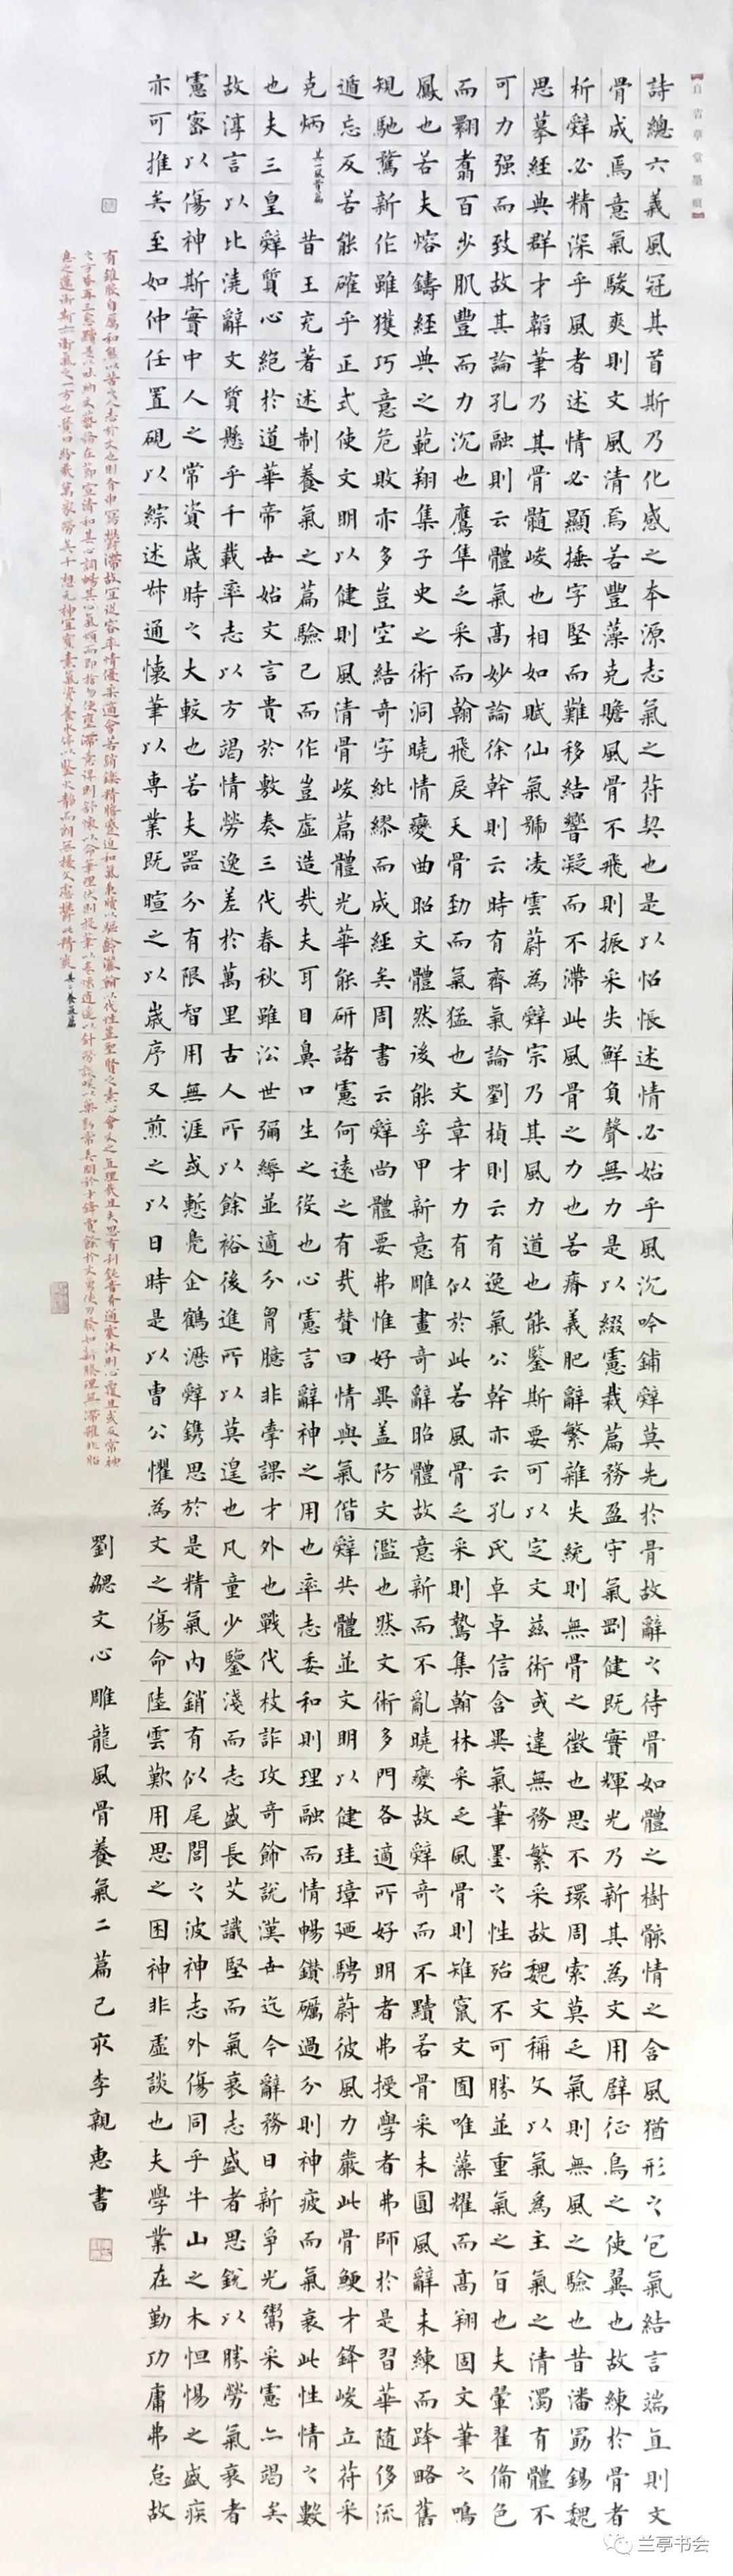 詩總六義風冠其首斯乃化感之本源志氣之苻契也是以怊悵述情必始乎風沉吟鋪辤莫先於骨故辭之待骨如體之樹骸情之含風猶形之包氣結言端直則文
骨成焉意氣駿爽則文風清焉若豐藻克贍風骨不飛則振采失鮮負聲無力是以綴慮裁篇務盈守氣剛健既實輝光乃新其為文用辟征鳥之使翼也故練於骨者
析辤必精深乎風者述情必顯捶字堅而難移結響凝而不滯此風骨之力也若瘠義肥辭繁雜失統則無骨之徵也思不環周索莫乏氣則無風之驗也昔潘勗錫魏
思摹經典群才韜筆乃其骨髓峻也相如賦仙氣號凌雲蔚為辤宗乃其風力道也能鑒斯要可以定文茲術或違無務繁采故魏文稱文以氣為主氣之清濁有體不
可力强而致故其論孔融則云體氣高妙論徐幹則云時有齊氣論劉楨則云有逸氣公幹亦云孔氏卓卓信含異氣筆墨之性殆不可勝並重氣之旨也夫翬翟備色
而翾翥百步肌豐而力沉也鷹隼乏采而翰飛戾天骨勁而氣猛也文章才力有似於此若風骨乏采則鷙集翰林采乏風骨則雉竄文囿唯藻耀而高翔固文筆之鳴
鳳也若夫熔鑄經典之範翔集子史之術洞曉情變曲昭文體然後能孚甲新意雕畫奇辭昭體故意新而不亂曉變故辤奇而不黷若骨采未圓風辭未練而跨略舊
規馳騖新作雖獲巧意危敗亦多豈空結奇字紕繆而成經矣周書云辤尚體要弗惟好異蓋防文濫也然文術多門各適所好明者弗授學者弗師於是習華随侈流
遁忘反若能確乎正式使文明以健則風清骨峻篇體光華能研諸慮何遠之有哉贊曰情與氣偕辤共體並文明以健珪璋廼騁蔚彼風力嚴此骨鯁才鋒峻立苻采
克炳 其一風骨篇 昔王充著述制養氣之篇驗己而作豈虛造哉夫耳目鼻口生之役也心慮言辭神之用也率志委和則理融而情暢鑽礪過分則神疲而氣衰此性情之數
也夫三皇辤質心絕於道華帝世始文言貴於敷奏三代春秋雖沿世彌縟並適分胷臆非牽課才外也戰代枝詐攻奇飾説漢世迄今辭務日新爭光鬻采慮亦竭矣
故淳言以比澆辭文質懸乎千載率志以方竭情勞逸差於萬里古人所以餘裕後進所以莫遑也凡童少鑒淺而志盛長艾識堅而氣衰志盛者思銳以勝勞氣衰者
慮密以傷神斯實中人之常資歲時之大較也若夫器分有限智用無涯或慙鳧企鶴瀝辤鐫思於是精氣內銷有似尾閭之波神志外傷同乎牛山之木怛惕之盛疾
亦可推矣至如仲任置硯以綜述叔通懷筆以專業既暄之以歲序又煎之以日時是以曹公懼為文之傷命陸雲歎用思之困神非虛談也夫學業在勤功庸弗怠故
有錐股自厲和熊以苦之人志於文也則有申寫鬱滯故宜從容率情優柔適會若銷鑠精膽蹙迫和氣秉牘以驅齡灑翰以伐性豈聖賢之素心會文之直理哉且夫思有利鈍時有通塞沐則心覆且或反常神
之方昏再三愈黷是以吐納文藝務在節宣清和其心調暢其心氣煩而即捨勿使壅滯意得則舒懷以命筆理伏則投筆以卷懷逍遙以針勞談笑以藥勌常弄閑於才鋒賈餘於文勇使刃發如新腠理無滯雖非胎
息之邁術斯亦衛氣之一方也贊曰紛哉萬象勞矣千想元神宜寶素氣資養水停以鑒火靜而朗無擾文慮鬱此精爽 其二養氣篇
劉勰文心雕龍風骨養氣二篇己亥李親惠書
兰亭书会